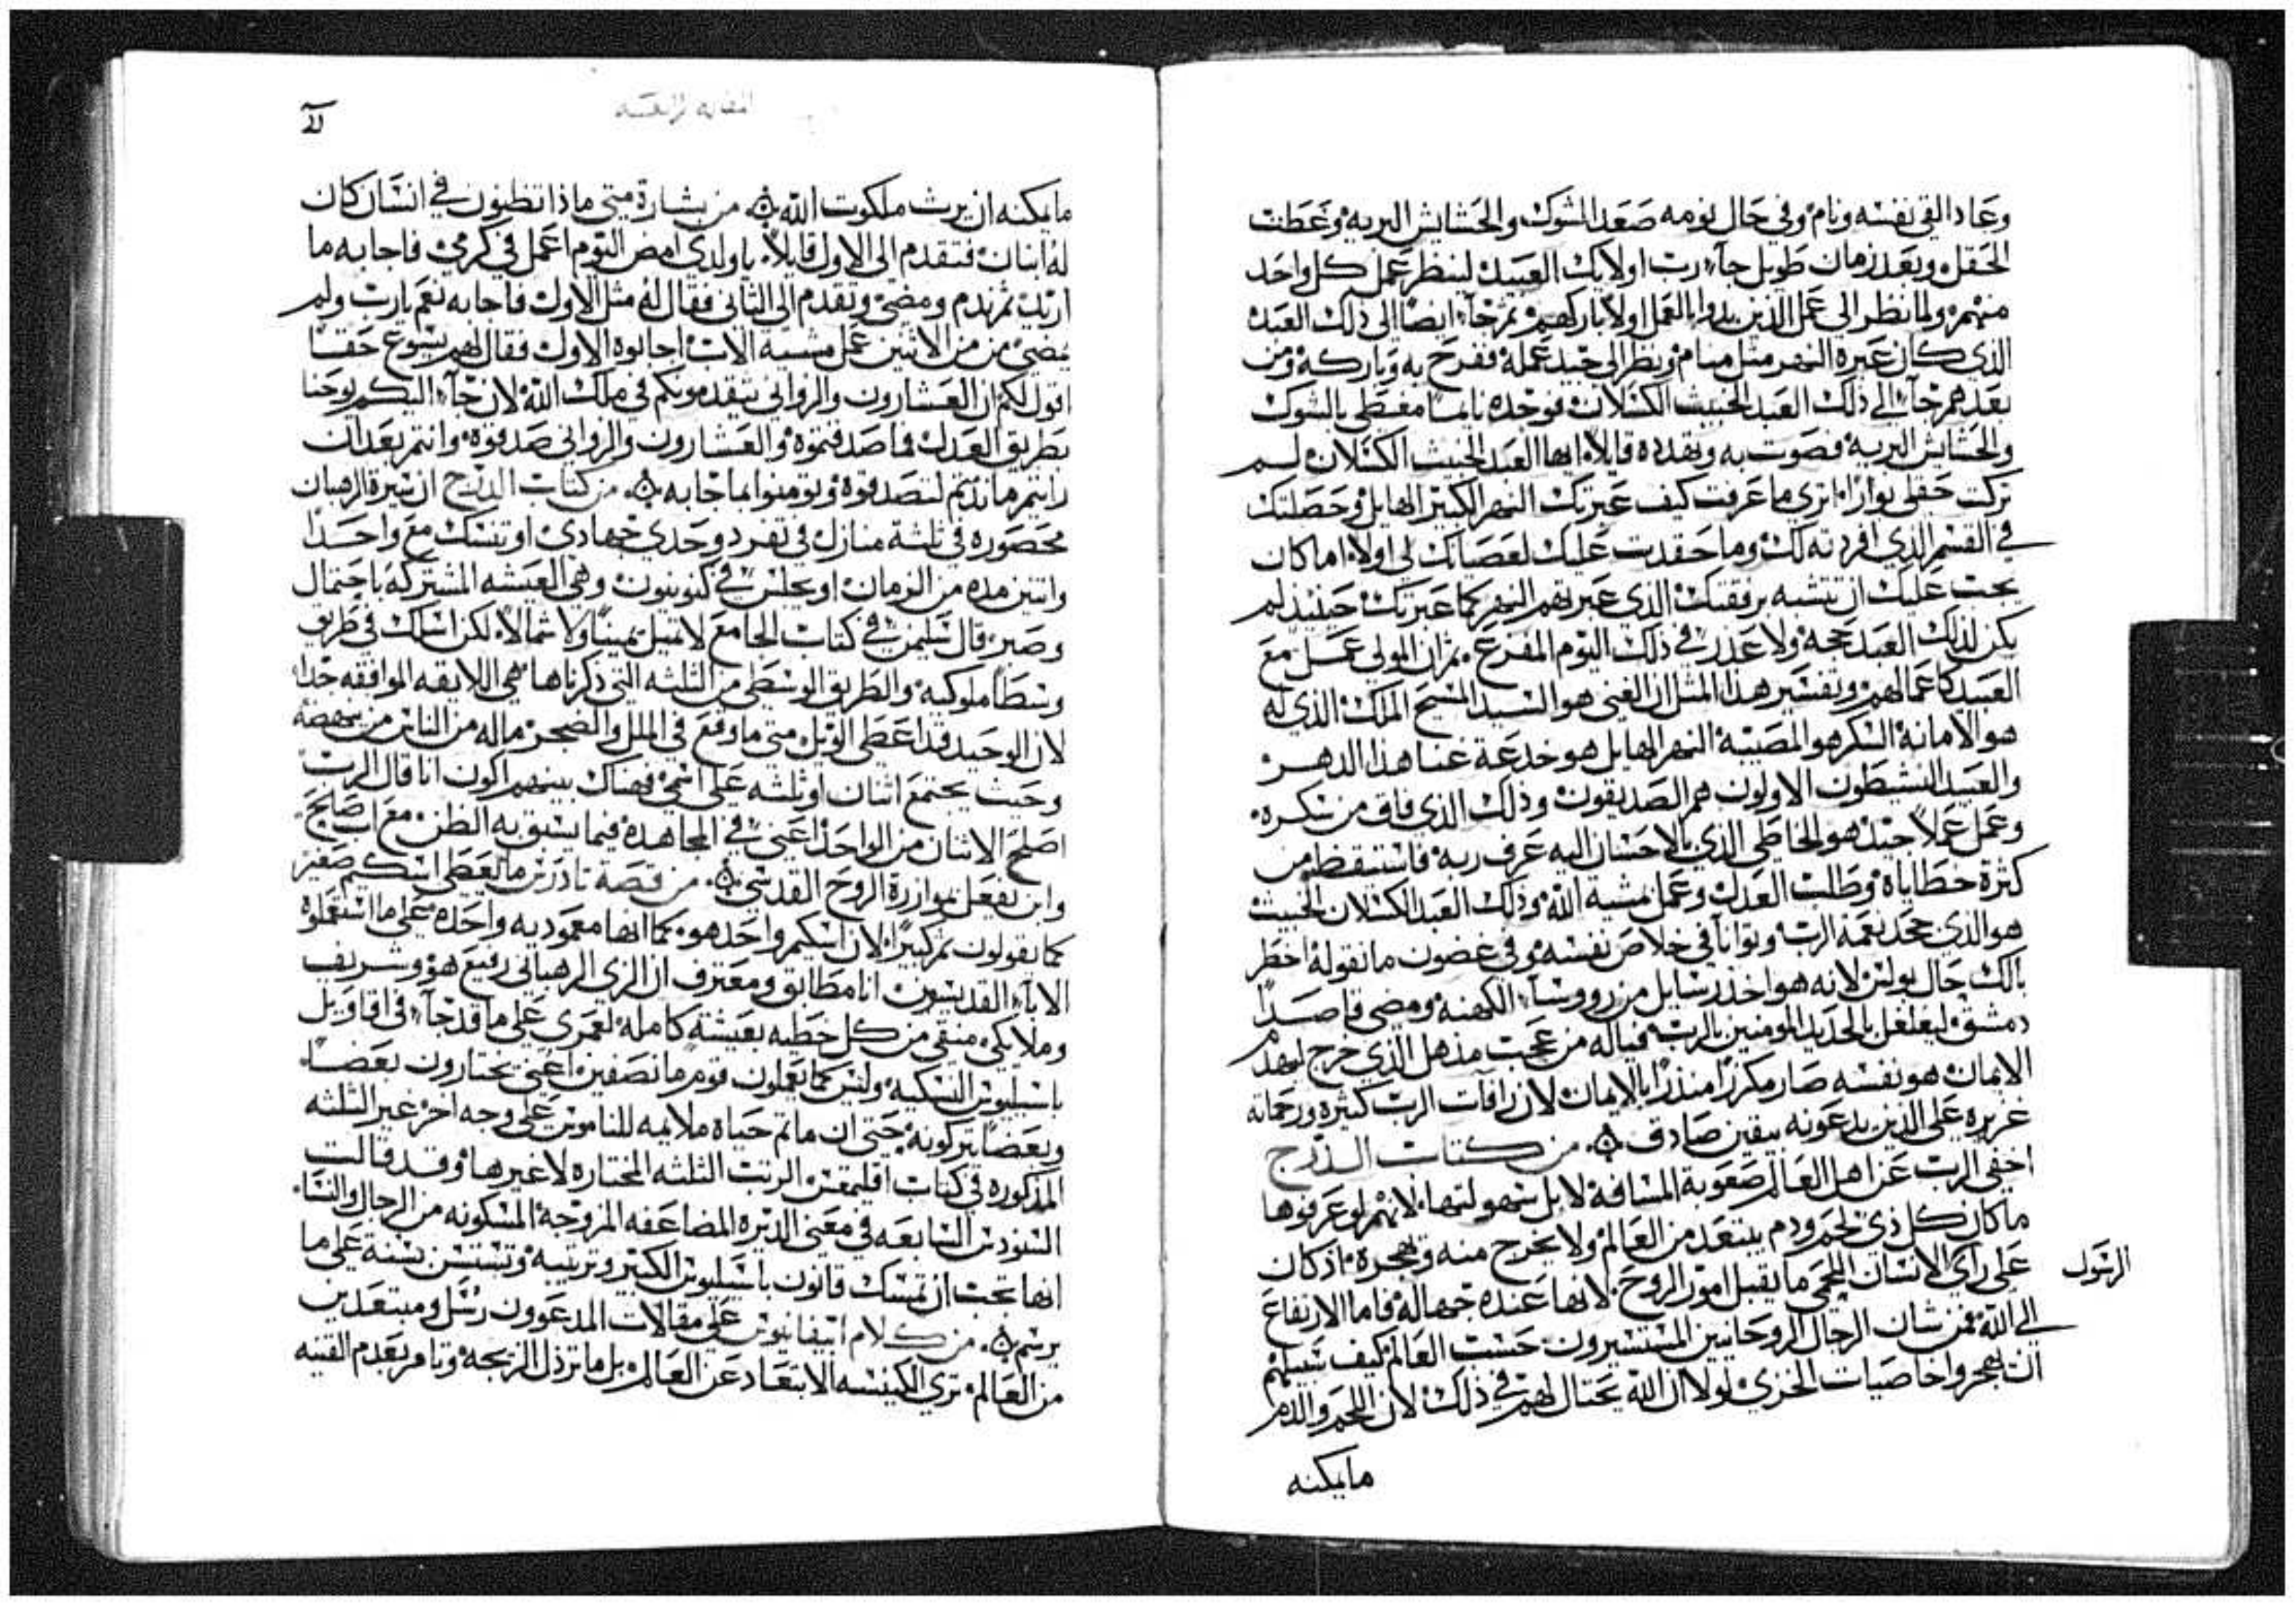 وعاد القي نفسه ونام وفي حال نومه صعد الشوك والحشايش البريه وغطت
الحقل وبعد زمان طويل جآء رب اولايك العبيد لينظر عمل كل واحد
منهم ولما نظر الى عمل الذين بدوا بالعمل اولاً باركهم ثم جآء ايضاً الى ذلك العبد
الذي كان عبره النهر مثل منام ونظر الى جيد عمله ففرح به وباركه ومن
بعدهم جآء الى ذلك العبد الخبيث الكسلان فوجده نايماً مغطى بالشوك
والحشايش البريه فصوت به وتهدده قايلاً ايها العبد الخبيث الكسلان لم
تركت حقلي بواراً اترى ما عرفت كيف عبرتك النهر الكبير الهايل وحصلتك
في القسم الذي افردته لك وما حقدت عليك لعصيانك لي اولاً اما كان
يجب عليك ان تتشبه برفقتك الذي عبرتهم النهر كما عبرتك حينيذ لم
يكن لذلك العبد حجة ولا عذر في ذلك اليوم المفزع ثم ان المولى عمل مع
العبيد كاعمالهم وتفسير هذا المثل ان الغني هو السيد المسيح الملك الذي له
هو الامانة السكر هو المصيبة النهر الهايل هو خدعة غنا هذا الدهر
والعبيد النشيطون الاولون هم الصديقون وذلك الذي فاق من سكره
وعمل عملاً جيد هو الخاطي الذي بالاحسان اليه عرف ربه فاستيقظ من
كثرة خطاياه وطلب العدل وعمل مشية الله وذلك العبد الكسلان الخبيث
هو الذي جحد نعمة الرب وتوانا في خلاص نفسه وفي غضون ما نقوله اخطر
بالك حال بولس لانه هو اخذ رسايل من رووسآء الكهنه ومضى قاصداً
دمشق ليغلغل بالحديد المومنين بالرب فياله من عجب مذهل الذي خرج ليهدم
الايمان هو نفسه صار مكرزاً منذراً بالايمان لان رافات الرب كثيره ورحماته
غزيره على الذين يدعونه بيقين صادق من كتاب الدرج
اخفى الرب عن اهل العالم صعوبة المسافة لا بل سهولتها لانهم لو عرفوها
ما كان كل ذي لحم ودم يبتعد من العالم ولا يخرج منه ويهجره اذ كان
على راي الانسان اللحمي ما يقبل امور الروح لانها عنده جهاله فاما الارتفاع
الرسول
الى الله فمن شان الرجال الروحانيين المستسيرون حسب العالم كيف سبيلهم
ان يهجروا خاصيات الخزي لولا ان الله يحتال لهم في ذلك لان اللحم والدم
ما يمكنه
ما يمكنه ان يرث ملكوت الله من بشارة متى ماذا تظنون في انسان كان
له ابنان فتقدم الى الاول قايلاً يا ولدي امض اليوم اعمل في كرمي فاجابه ما
اريد ثم ندم ومضى وتقدم الى الثاني فقال له مثل الاول فاجابه نعم يا رب ولم
يمضي من من الاثنين عمل مشيه الاب اجابوه الاول فقال لهم يسوع حقاً
اقول لكم ان العشارون والزواني يتقدمونكم في ملك الله لان جآء اليكم يوحنا
بطريق العدل فما صدقتموه والعشارون والزواني صدقوه وانتم بعد ان
رايتم ما ندمتم لتصدقوه وتومنوا بما جا به من كتاب الدرج ان سيرة الرهبان
محصوره في ثلثة منازل في تفرد وحدي جهادي او تنسك مع واحداً
واثنين مده من الزمان او يجلس في كنوبيون وهي العيشه المشتركه باحتمال
وصبر قال سليمن في كتاب الجامع لا تميل يميناً ولا شمالاً لكن اسلك في طريق
وسطاً ملوكيه والطريق الوسطى من الثلثه التي ذكرناها هي اللايقه الموافقه جداً
لان الوحيد قد اعطي الويل متى ما وقع في الملل والضجر ماله من الناس من ينهضه
وحيث يجتمع اثنان او ثلثه على اسمي فهناك بينهم اكون انا قال الرب
اصلح الاثنان من الواحد اعني في المجاهده فيما يسبق به الظن مع اب صالح
وابن يفعل بموازرة الروح القدس من قصة تادرس ما تعطي اسكيم صغير
كما يقولون ثم كبيراً لان اسكيم واحد هو كما انها معموديه واحده على ما استعملوه
الابآء القديسون انا مطابق ومعترف ان الزي الرهباني رفيع هو وشريف
وملايكي منقى من كل خطيه بعيشة كامله لعمري على ما قد جآء في اقاويل
باسيليوس النسكيه وليس كما يعملون قوم ما نصفين اعني يختارون بعضاً
وبعضاً يتركونه حتى ان ما تم حياه ملايمه للناموس على وجه اخر غير الثلثه
المذكوره في كتاب اقليمقس الرتب الثلثه المختاره لا غيرها وقد قالت
السنودس السابعه في معنى الديره المضاعفه المزوجه المسكونه من الرجال والنسا
انها يجب ان تمسك قانون باسيليوس الكبير وترتيبه وتستسن بسنة على ما
برسم من كلام ابيفانيوس على مقالات المدعوون رسل ومبتعدين
من العالم ترى الكنيسه الابتعاد عن العالم بل ما ترذل الزيجه وتامر بعدم القنيه